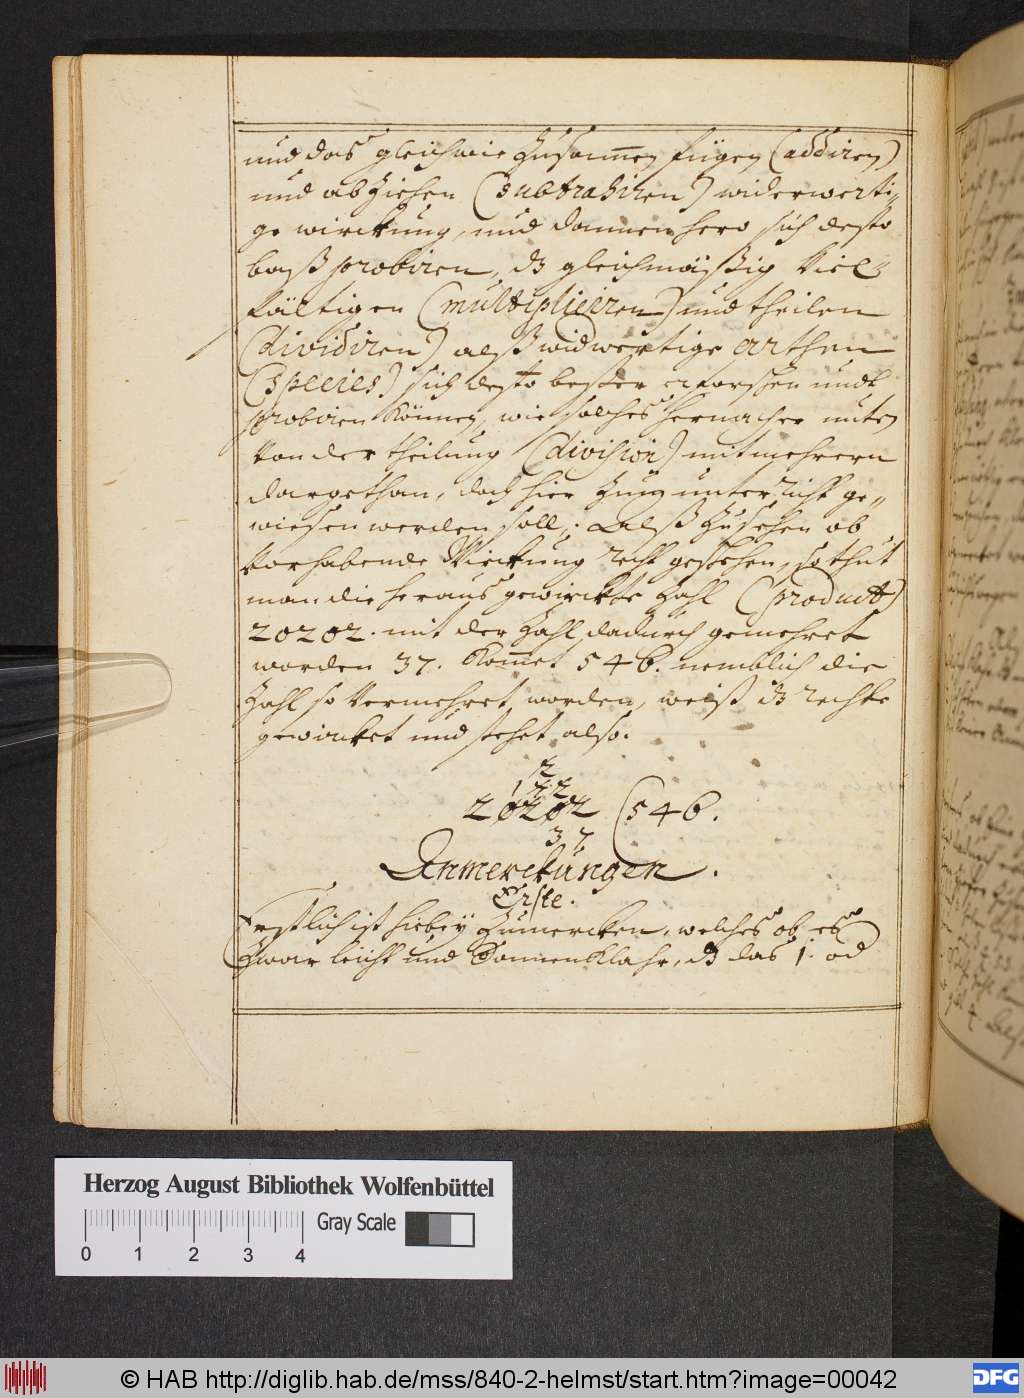 und das gleich wie Zusammen fügen (addiren)
und abZiehen (subtrahiren) widerwerti-
ge wirckung, und dannen hero sich desto
baß probiren, dz gleichmäßig Viel-
fältigen (multipliciren) und theilen
(dividiren) alß widwertige arthen
(species) sich desto beßer erforschen undt
probiren können, wie solches hernacher unten
Von der theilung (division) mit mehrern
dargethan, doch hier Zum unterricht ge-
wiesen werden soll; Alß Zu sehen ob
Vorhabende Wirckung recht geschehen, so thut
man die heraus gewirckte Zahl (product)
20202. mit der Zahl dadurch gemehret
worden 37. Kommet 546. nemblich die
Zahl so Vermehret worden, weiß dz rechte
gewircket und stehet also.
2
1 22
20202 (546.
37
Anmerckungen.
Erste.
Erstlich ist hiebey Zumercken, welches ob es
Zwar leicht und Sonnen Klahr, dz das 1. od
Herzog August Bibliothek Wolfenbüttel
Gray Scale
0 1 2 3 4
© HAB http://diglib.hab.de/mss/840-2-helmst/start.htm?image=00042
DFG